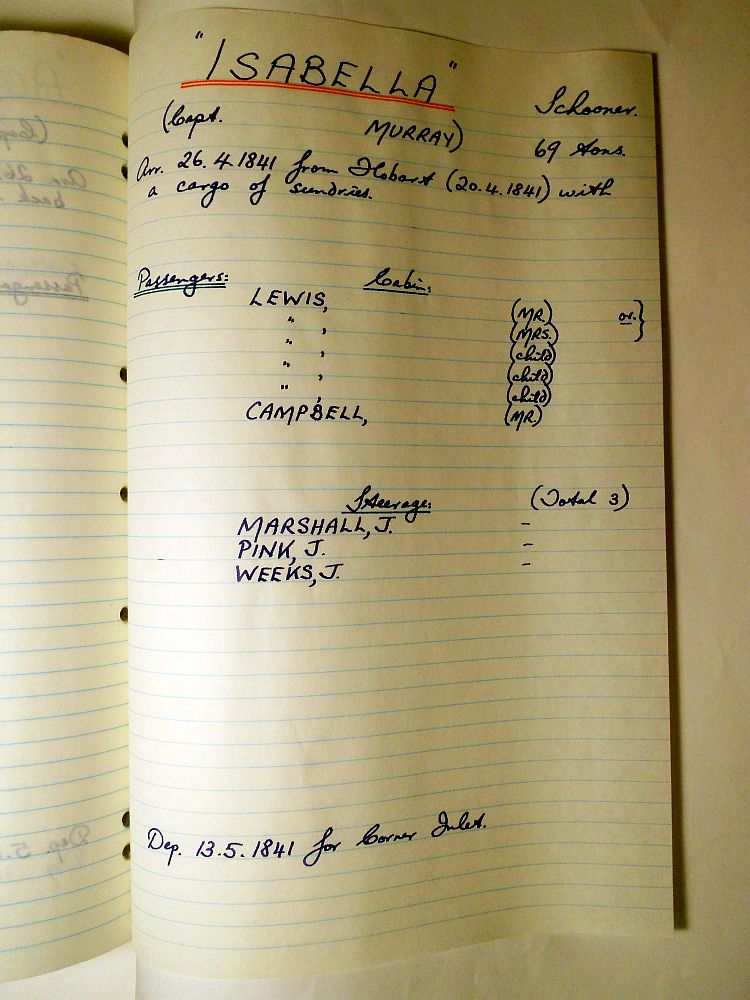 "ISABELLA"
Schooner.
(Capt. MURRAY) 69 tons.
Arr. 26.4.1841 from Hobart (20.4.1841) with
a cargo of sundries.
Passengers: Cabin:
LEWIS, (MR.) or. }
" , (MRS.)
" , (child)
" , (child)
" , (child)
CAMPBELL, (MR.)
Steerage: (Total 3)
MARSHALL, J. -
PINK, J. -
WEEKS, J. -
Dep. 13.5.1841 for Corner Inlet.